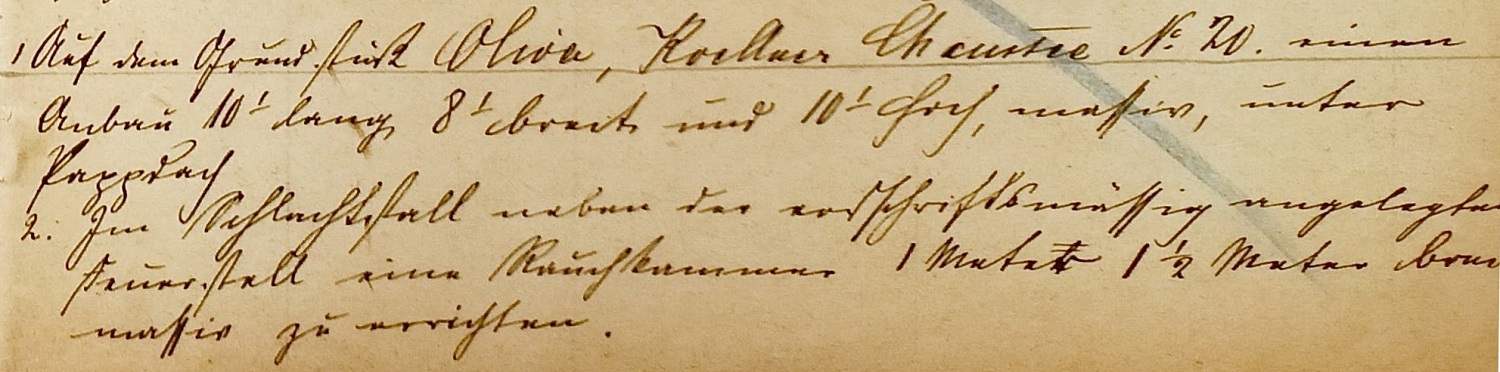 1 Auf dem Grundstück Oliva, Koellner Chaussee No 20. einen
Anbau 10' lang 8' breit und 10' hoch, massiv, unter
Pappdach
2. Im Schlachtstall neben der vorschriftsmässig angelegten
Feuerstell eine Rauchkammer 1 Meter 1 1/2 Meter breit
massiv zu errichten.